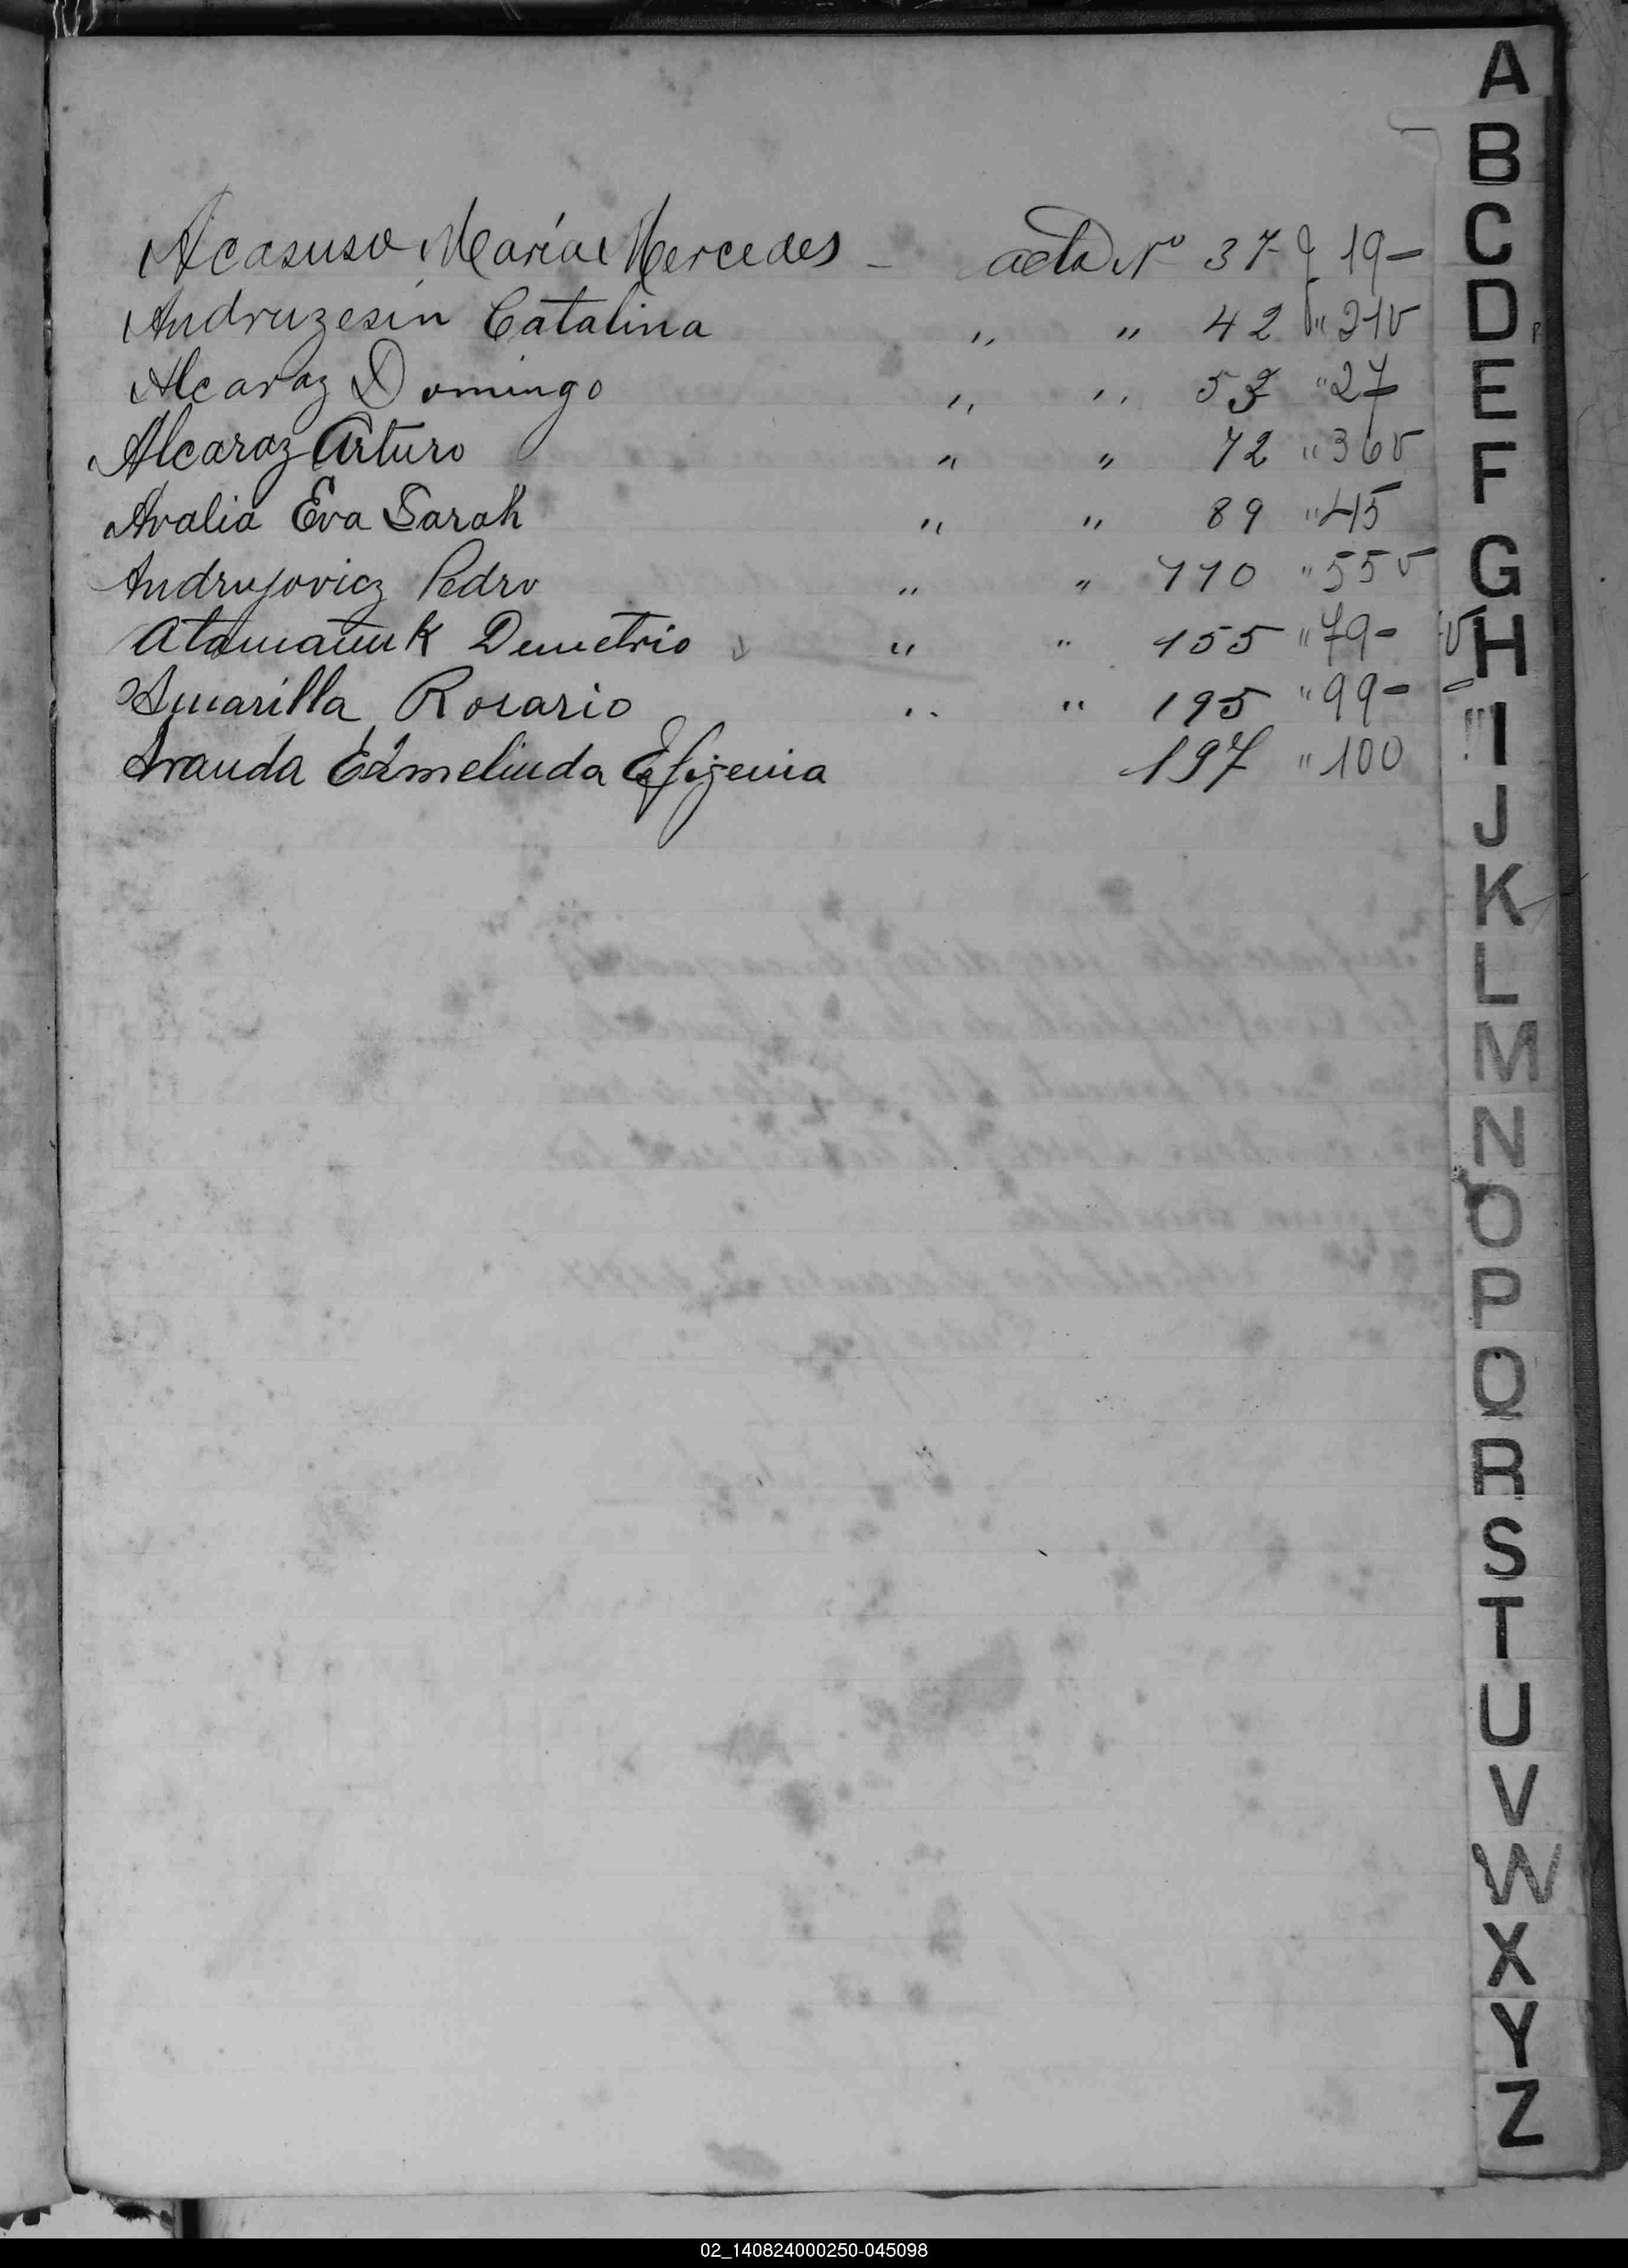 Acasuso María Mercedes - acta Nº 37 f 19-
Andruzesin Catalina " " 42 " 21v
Alcaraz Domingo " " 53 " 27
Alcaraz Arturo " " 72 " 36v
Avalia Eva Sarah " " 89 " 45
Andrujovicz Pedro " " 110 " 55v
Atamaniuk Demetrio " " 155 " 79-
Amarilla Rosario " " 195 " 99-
Aranda Edmelinda Efigenia 197 " 100
A
B
C
D
E
F
G
H
I
J
K
L
M
N
O
P
Q
R
S
T
U
V
W
X
Y
Z
02_140824000250-045098